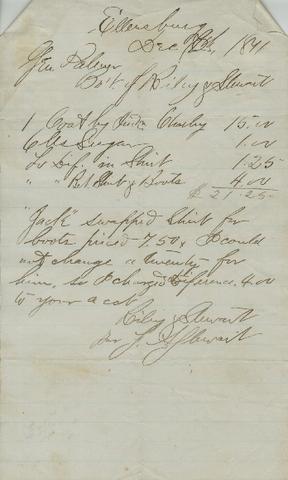 Ellensburg
Dec 1891
Geo Palmer
Bo't of Riley & Stewart
1 Coat by Charley 15.00
6 lbs Sugar 1.00
To Dif. in Shirt 1.25
" " Bet Shirt & Boots 4.00
$ 21.25
"Jack" swapped Shirt for
boots priced 7.50 & I could
not change a twenty for
him, so I charged Diference 4.00
to your a/ct
Riley & Stewart
Per Stewart